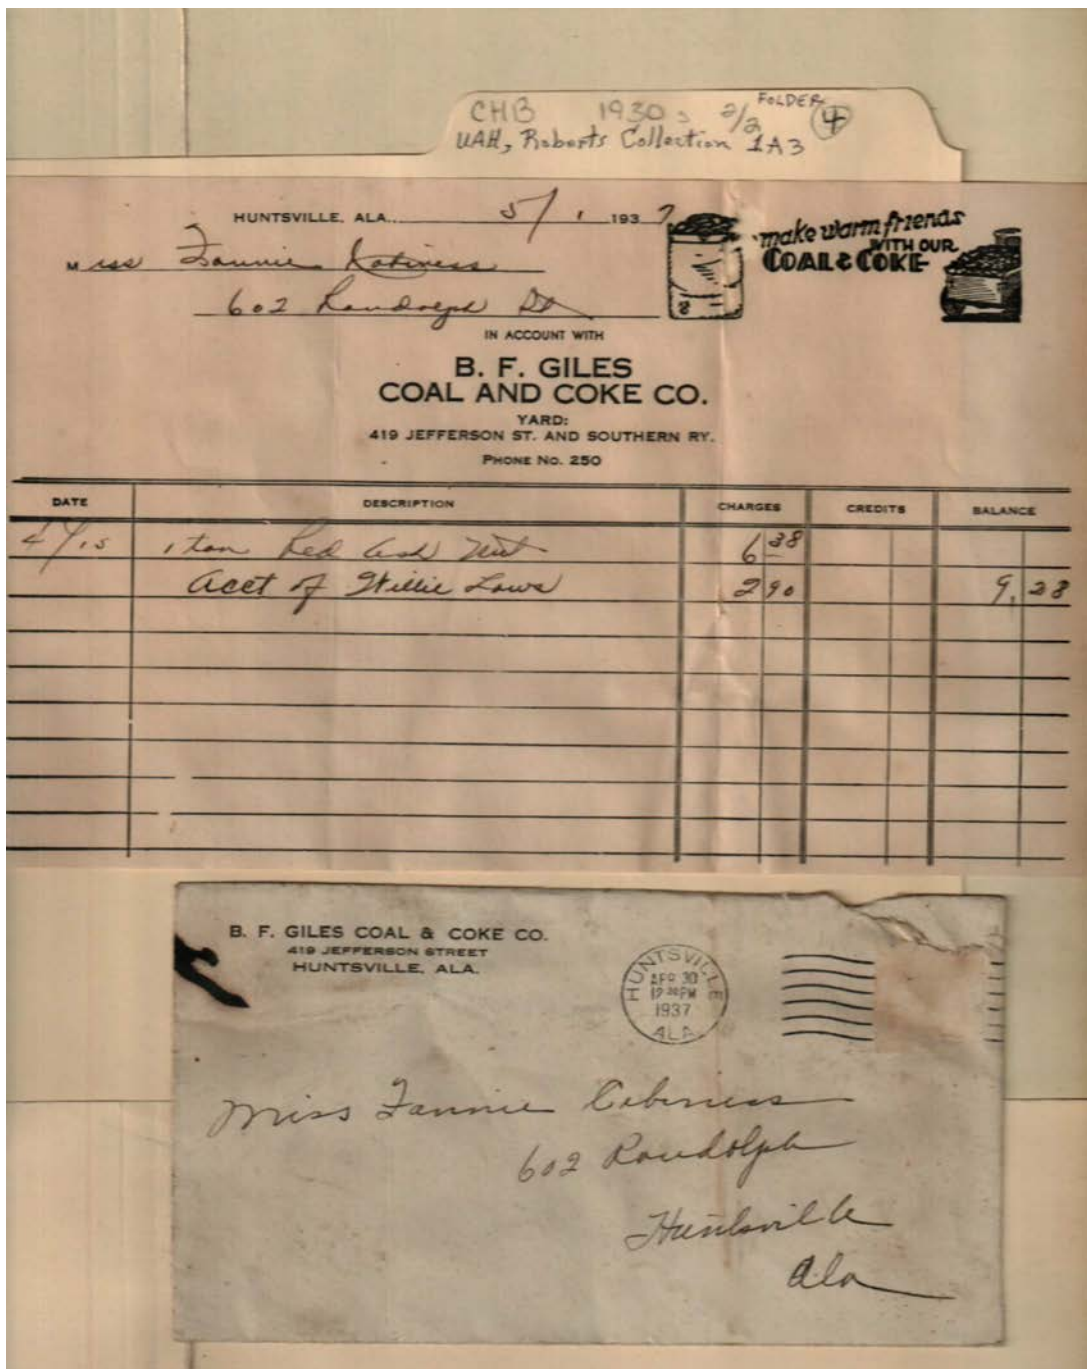 CHB 1930s 2/2 FOLDER 4
UAH, Roberts Collection 1A3
HUNTSVILLE, ALA. 5/1 1937
make warm friends
WITH OUR
COAL & COKE
Miss Fannie
602 Randolph St
IN ACCOUNT WITH
B. F. GILES
COAL AND COKE CO.
YARD:
419 JEFFERSON ST. AND SOUTHERN RY.
PHONE NO. 250
DATE DESCRIPTION CHARGES CREDITS BALANCE
4/15 1 ton Red Ash Nut 6 38
acct of Willie Lowe 2 90 9, 28
B. F. GILES COAL & COKE CO.
419 JEFFERSON STREET
HUNTSVILLE, ALA.
HUNTSVILLE
APR 30
12 30 PM
1937
ALA.
Miss Fannie Cabiness
602 Randolph
Huntsville
Ala